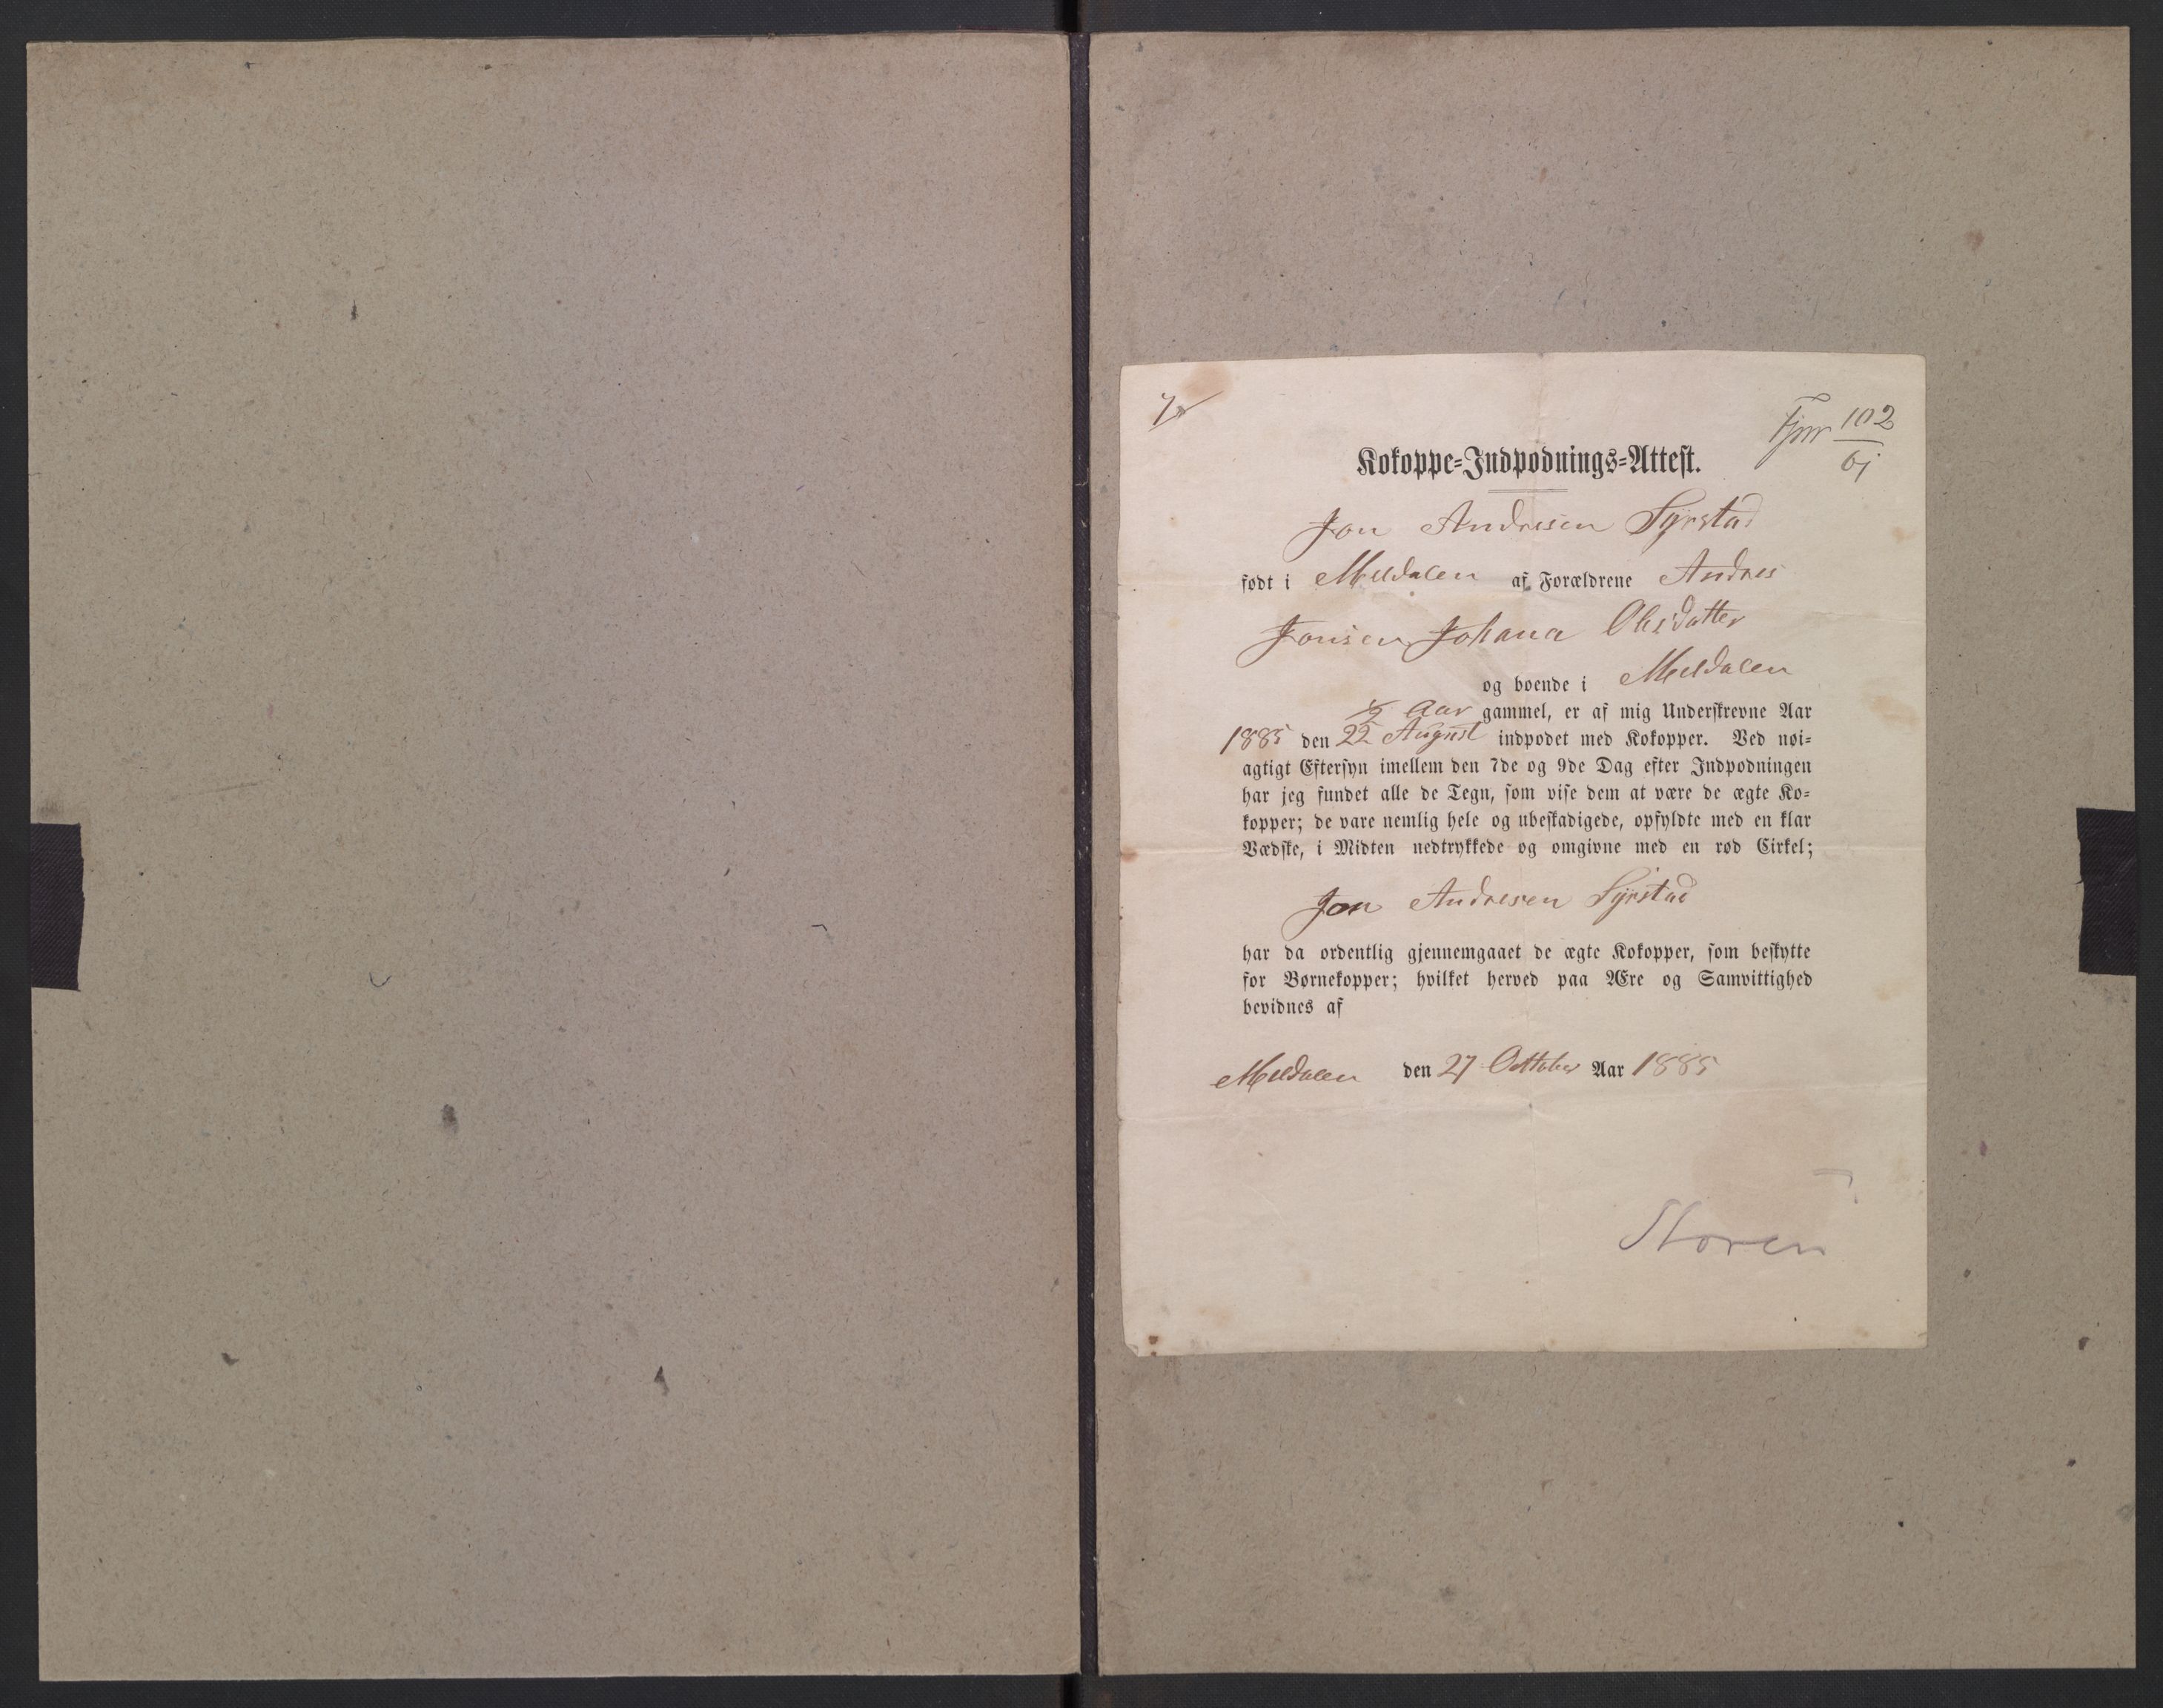 102
Kokoppe-Indpodnings-Attest.
Jon Andresen Syrstad
født i Meldalen af Forældrene Andres
Jonsen Johana Olsdatter
og boende i Meldalen
½ Aar gammel, er af mig Underskrevne Aar
1885 den 22 August indpodet med Kokopper. Ved nøi-
agtigt Eftersyn imellem den 7de og 9de Dag efter Indpodningen
har jeg fundet alle de Tegn, som vise dem at være de ægte Ko-
kopper; de vare nemlig hele og ubeskadigede, opfyldte med en klar
Vædske, i Midten nedtrykkede og omgivne med en rød Cirkel;
Jon Andresen Syrstad
har da ordentlig gjennemgaaet de ægte Kokopper, som beskytte
for Børnekopper; hvilket herved paa Ære og Samvittighed
bevidnes af
Meldalen den 27 Oktober Aar 1885
Støren